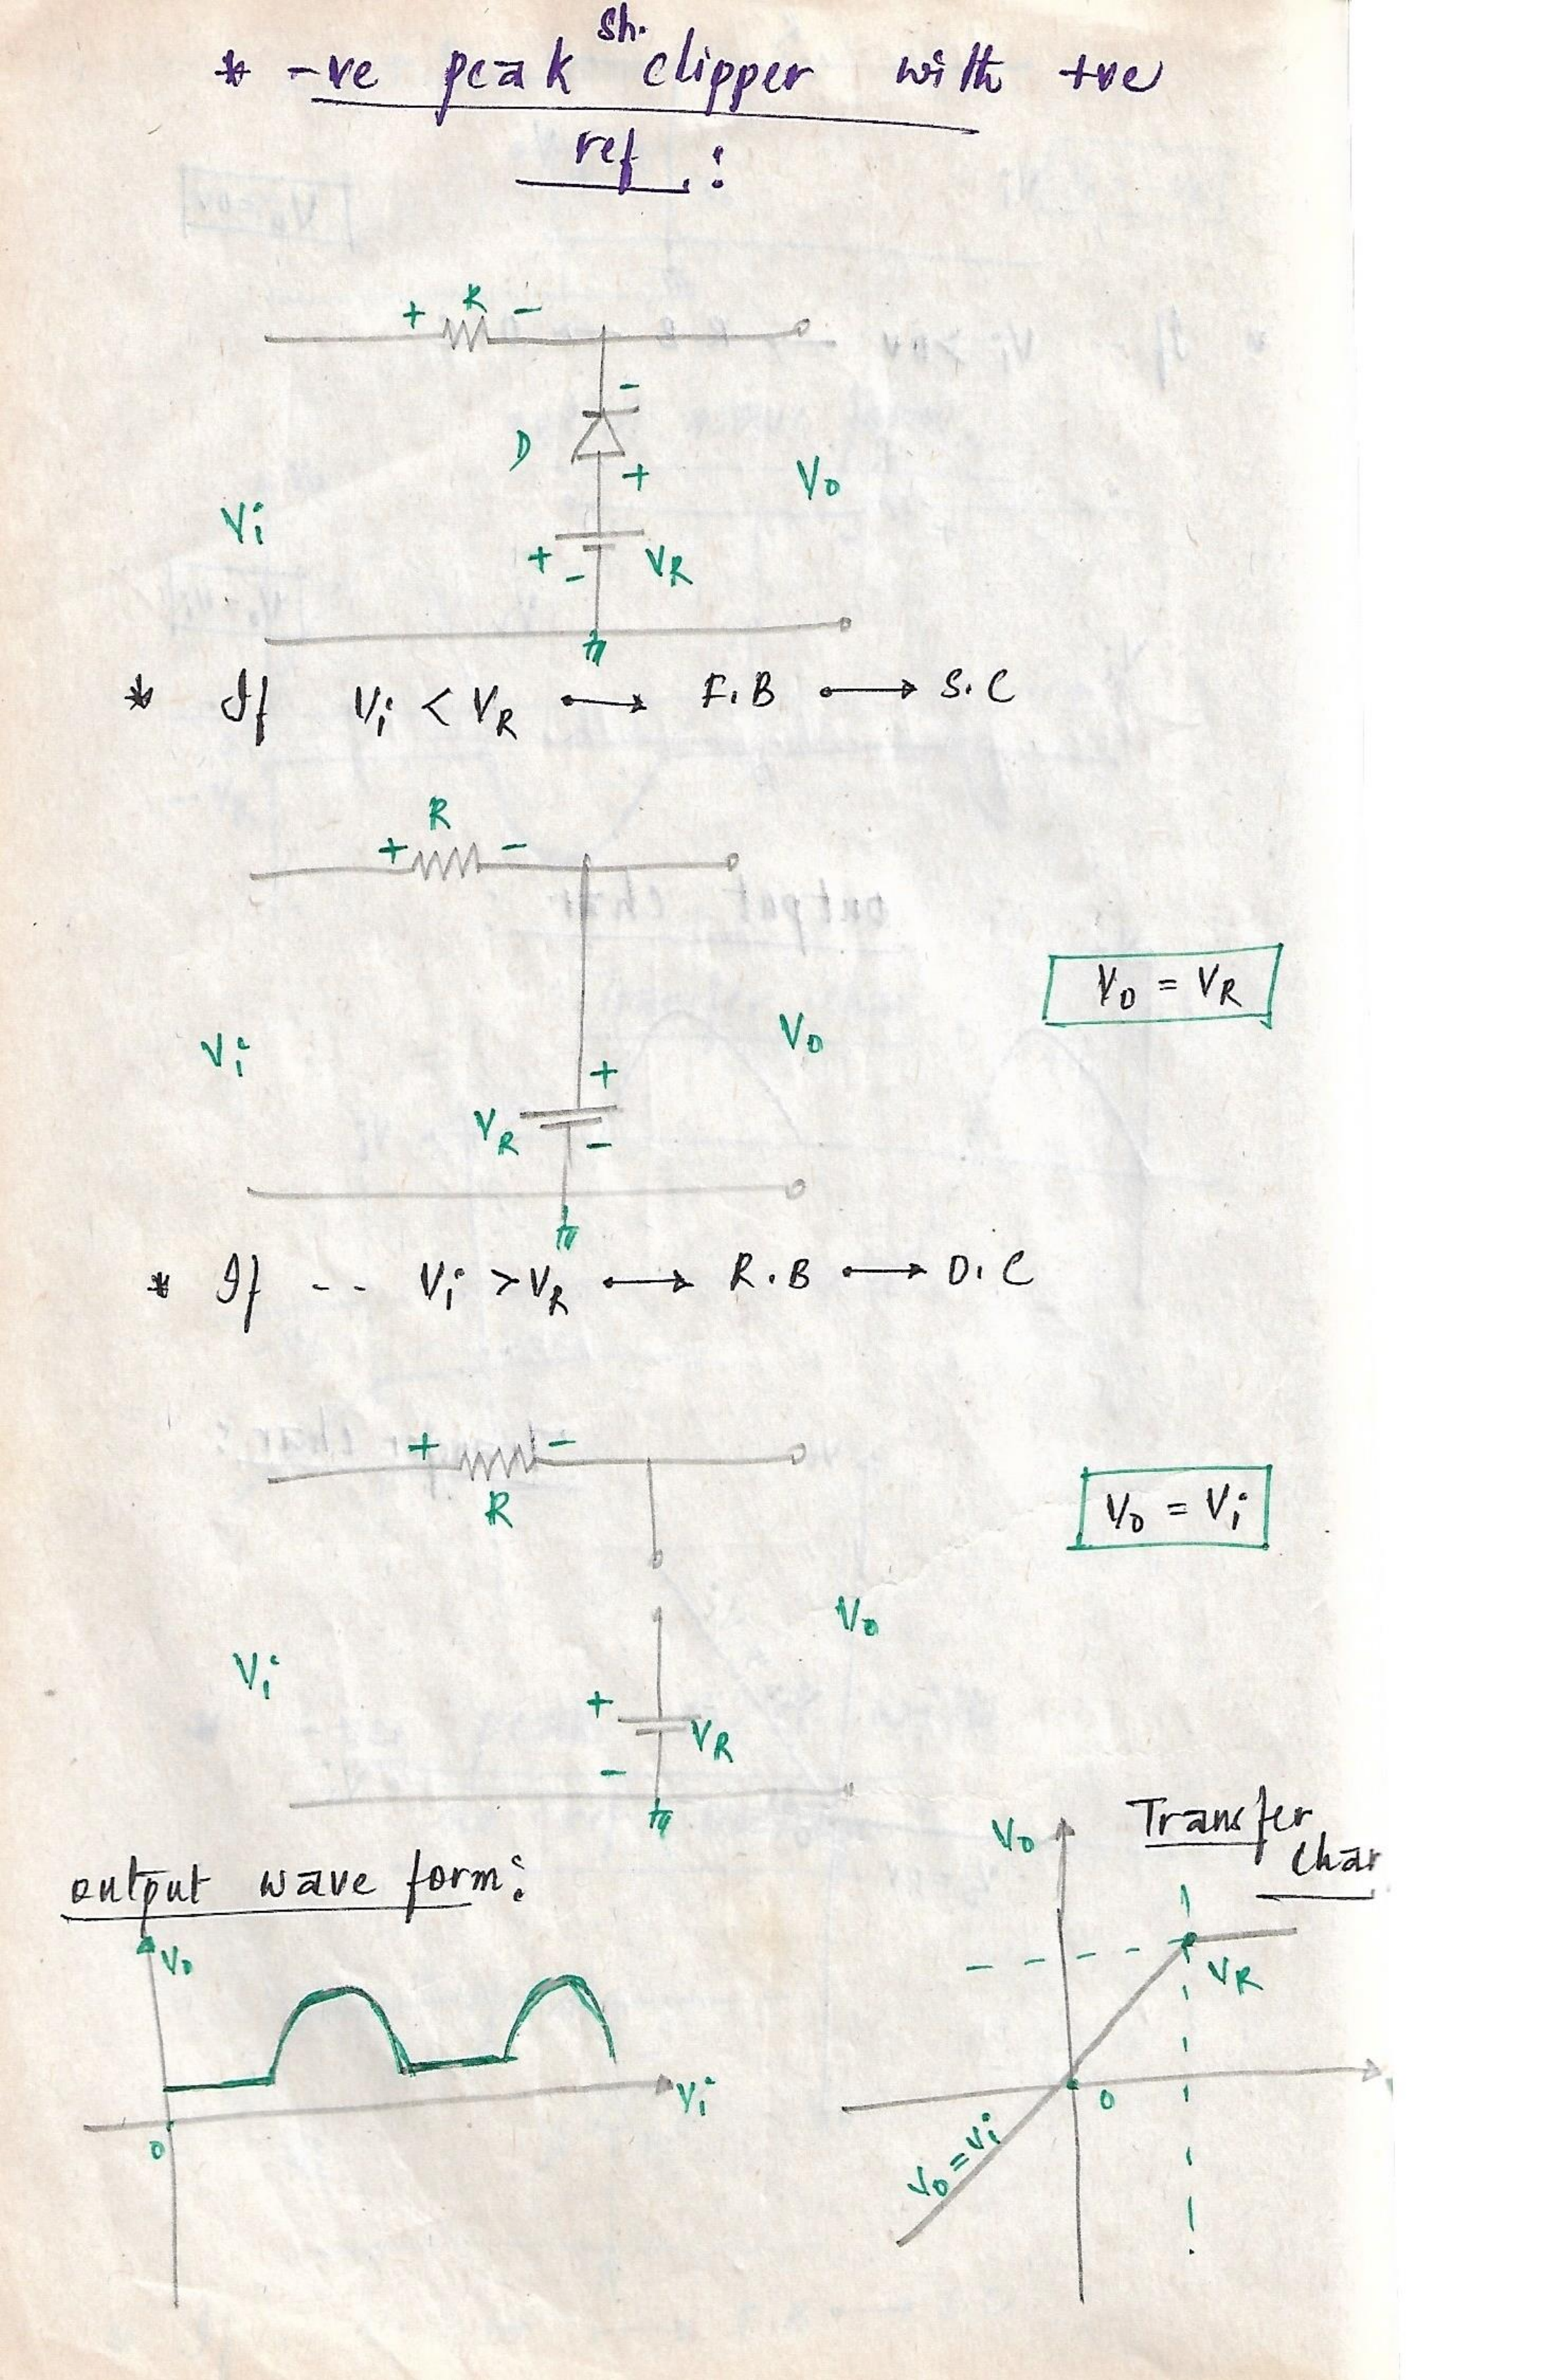 * -ve peak sh. clipper with +ve
ref :
+ R -
-
D
+
Vo
Vi
+ - VR
* If Vi < VR → F.B → S.C
R
+ -
Vo = VR
Vi
Vo
+
VR
-
* If -- Vi > VR → R.B → O.C
+ -
R
Vo = Vi
Vo
Vi
+
VR
-
output wave form:
Vo
Vi
0
Transfer
char
Vo
VR
0
Vo = Vi